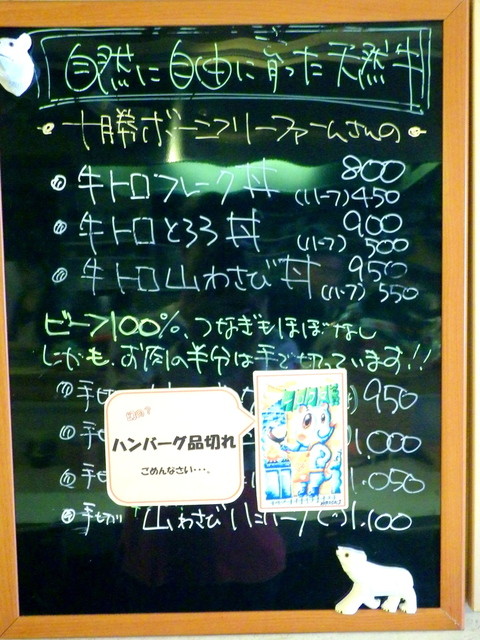 自然に自由に育った天然牛
十勝ボーンフリーファームさんの
① 牛トロフレーク丼 800
(ハーフ) 450
② 牛トロとろろ丼 900
(ハーフ) 500
③ 牛トロ山わさび丼 950
(ハーフ) 550
ビーフ100%、つなぎもほぼなし
しかも、お肉の半分は手で切っています!!
手 950
手 1,000
手 1,050
④ 手切り 山わさびハンバーグ 1,100
ハンバーグ品切れ
ごめんなさい・・・。